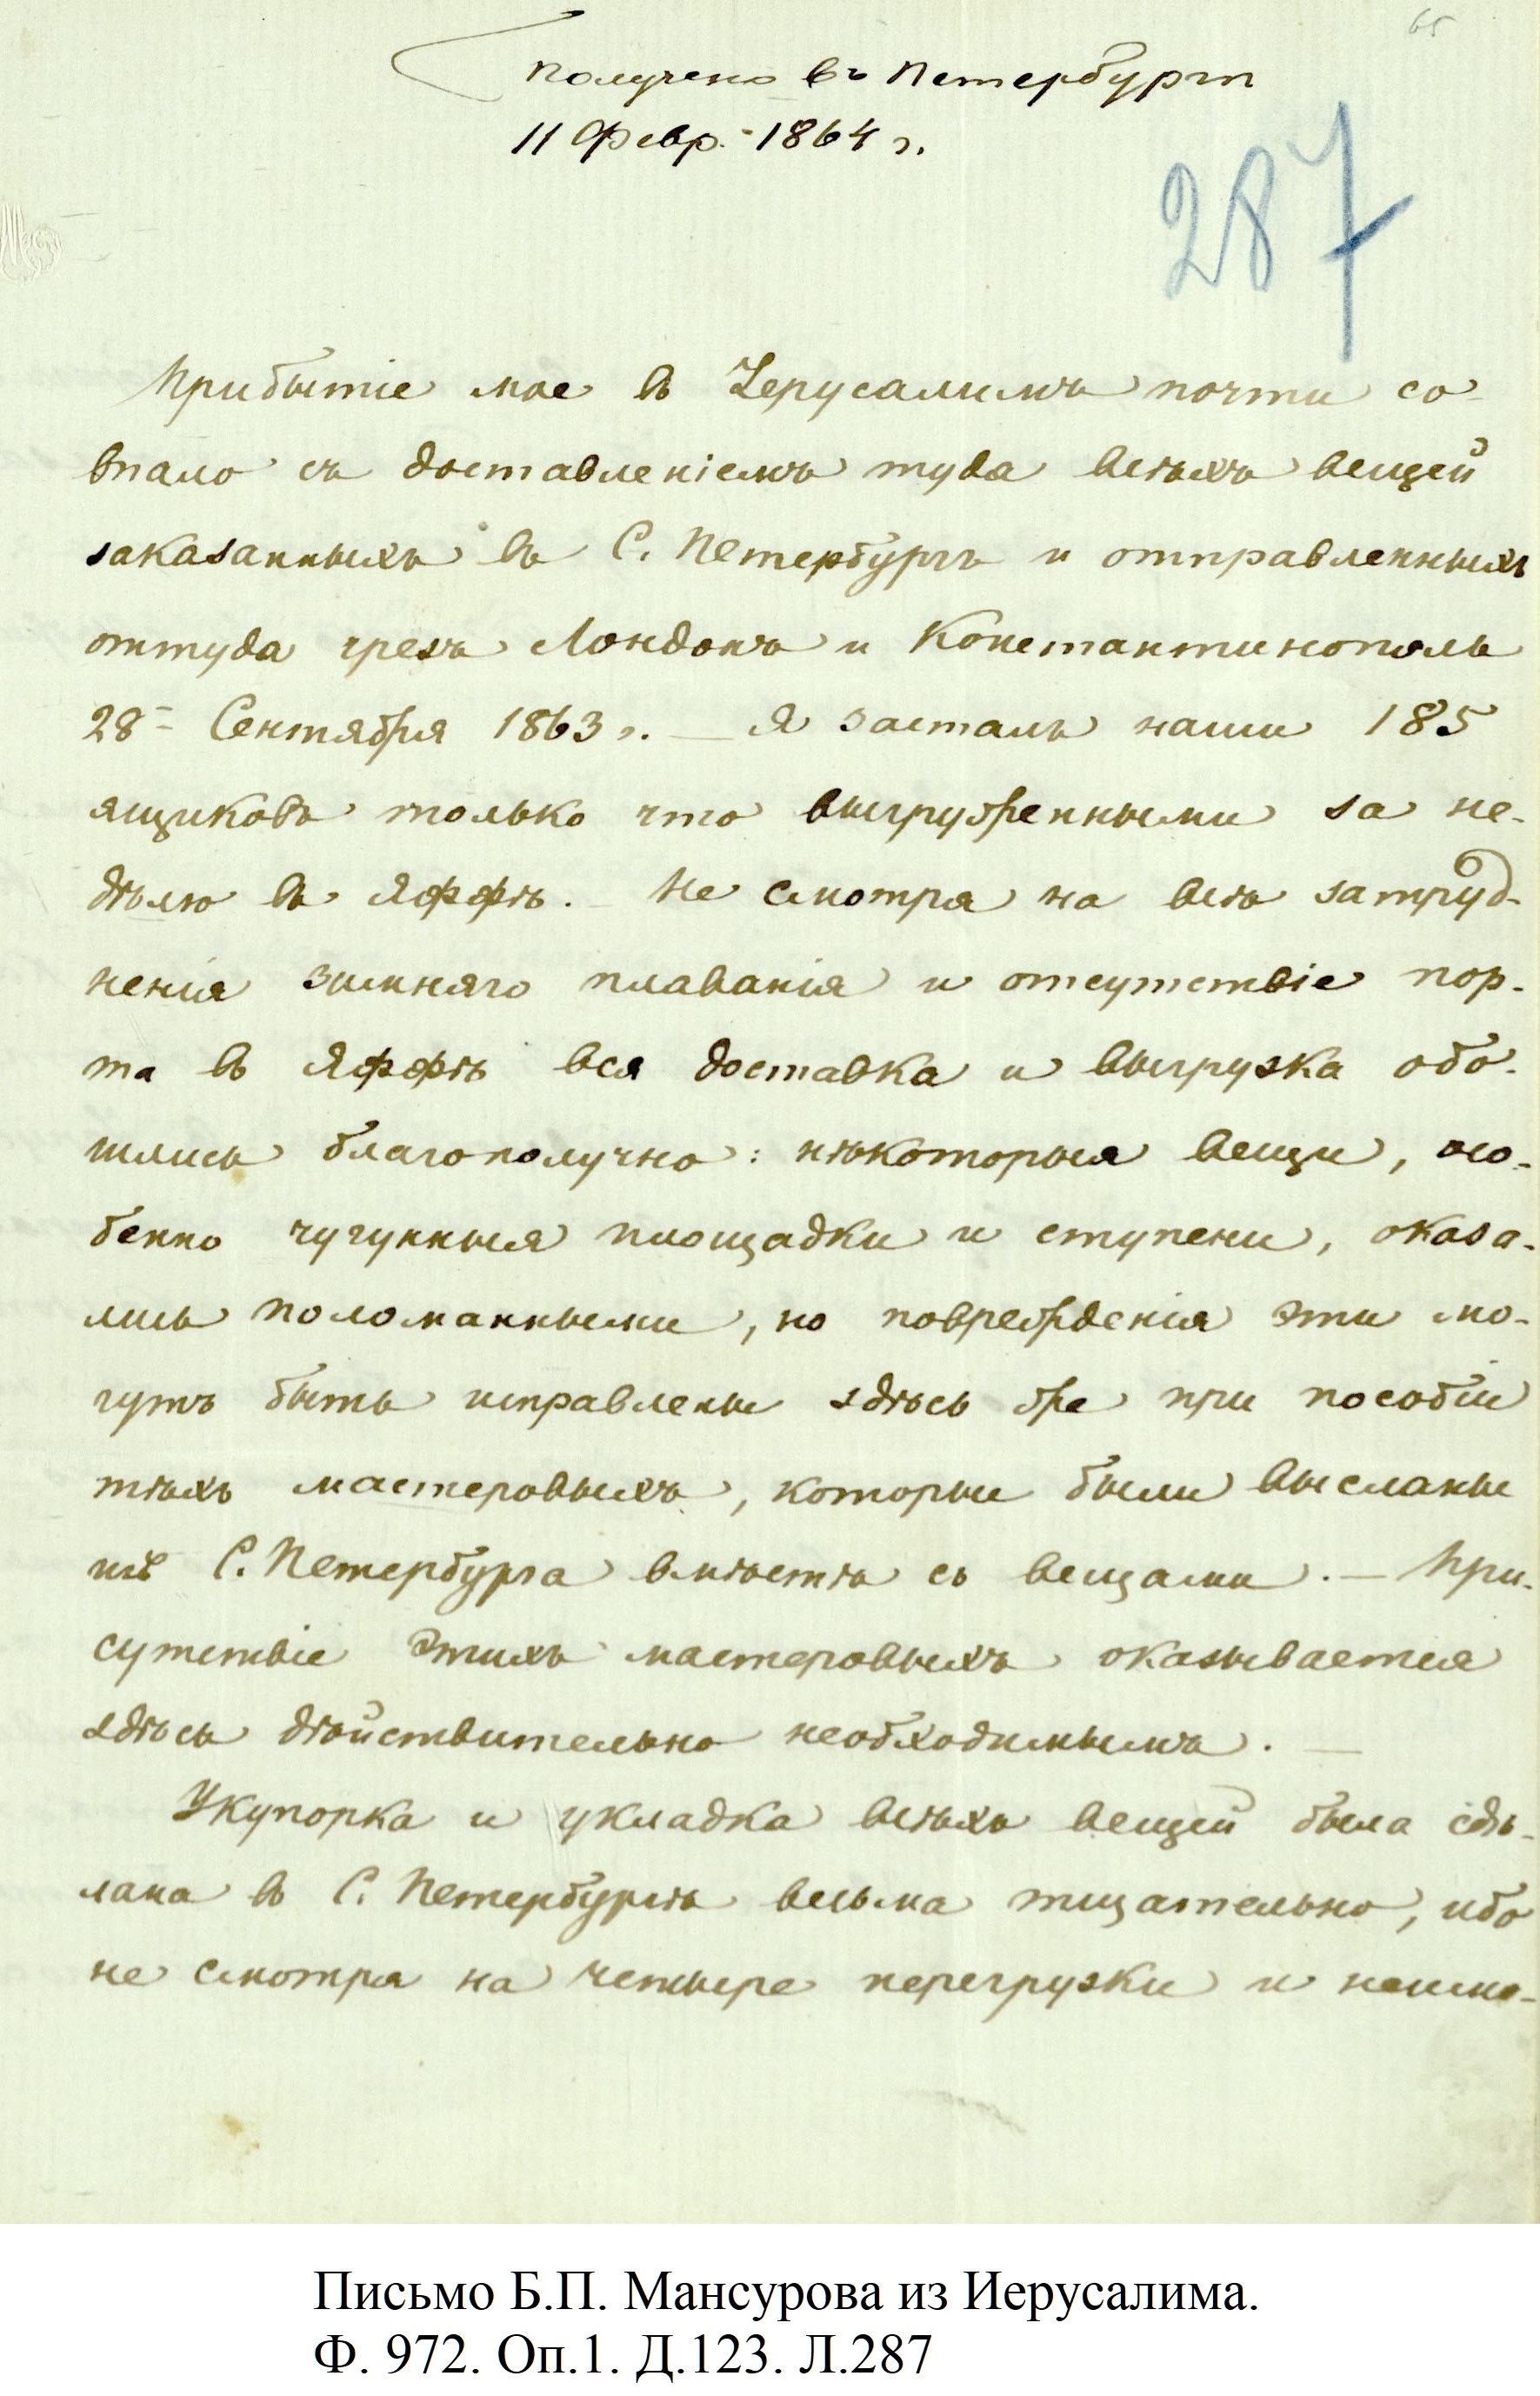 65
Получено въ Петербургѣ
11 Февр. 1864 г.
287
Прибытіе мое въ Іерусалимъ почти со-
впало съ доставленіемъ туда всѣхъ вещей
заказанныхъ въ С. Петербургѣ и отправленныхъ
оттуда чрезъ Лондонъ и Константинополь
28 Сентября 1863 г. — Я засталъ наши 185
ящиковъ только что выгруженными за не-
дѣлю въ Яффѣ. — Не смотря на всѣ затруд-
ненія зимняго плаванія и отсутствіе пор-
та въ Яффѣ вся доставка и выгрузка обо-
шлись благополучно: нѣкоторыя вещи, осо-
бенно чугунныя площадки и ступени, оказа-
лись поломанными, но поврежденія эти мо-
гутъ быть исправлены здѣсь же при пособіи
тѣхъ мастеровыхъ, которые были высланы
изъ С. Петербурга вмѣстѣ съ вещами. — При-
сутствіе этихъ мастеровыхъ оказывается
здѣсь дѣйствительно необходимымъ. —
Укупорка и укладка всѣхъ вещей была сдѣ-
лана въ С. Петербургѣ весьма тщательно, ибо
не смотря на четыре перегрузки и
Письмо Б.П. Мансурова из Иерусалима.
Ф. 972. Оп.1. Д.123. Л.287